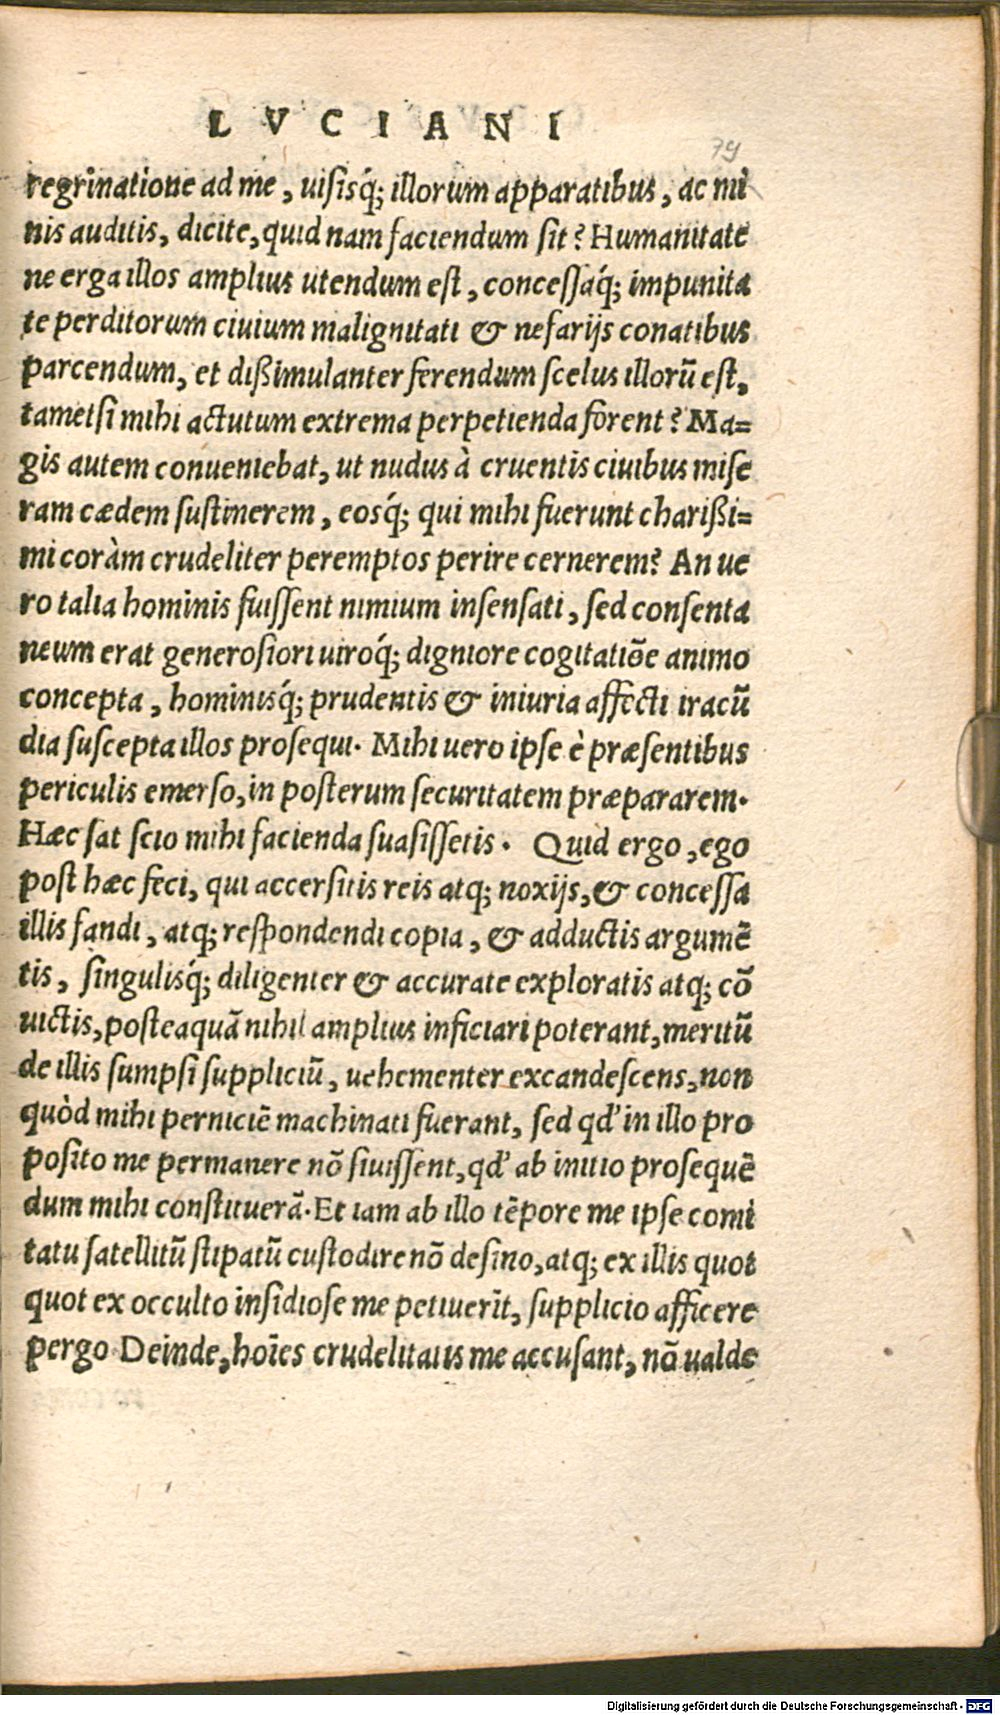 LVCIANI
79
regrinatione ad me, uisisq́; illorum apparatibus, ac mi
nis auditis, dicite, quid nam faciendum sit? Humanitate
ne erga illos amplius utendum est, concessaq́; impunita
te perditorum ciuium malignitati & nefarijs conatibus
parcendum, et dißimulanter ferendum scelus illorũ est,
tametsi mihi actutum extrema perpetienda forent? Ma=
gis autem conueniebat, ut nudus à cruentis ciuibus mise
ram cædem sustinerem, eosq́; qui mihi fuerunt charißi=
mi coràm crudeliter peremptos perire cernerem? An ue
ro talia hominis fuissent nimium insensati, sed consenta
neum erat generosiori uiroq́; digniore cogitatiõe animo
concepta, hominisq́; prudentis & iniuria affecti iracũ
dia suscepta illos prosequi. Mihi uero ipse è præsentibus
periculis emerso, in posterum securitatem præpararem.
Hæc sat scio mihi facienda suasissetis. Quid ergo, ego
post hæc feci, qui accersitis reis atq; noxijs, & concessa
illis fandi, atq; respondendi copia, & adductis argumẽ
tis, singulisq́; diligenter & accurate exploratis atq; cõ
uictis, posteaquã nihil amplius inficiari poterant, meritũ
de illis sumpsi suppliciũ, uehementer excandescens, non
quòd mihi perniciẽ machinati fuerant, sed qd' in illo pro
posito me permanere nõ siuissent, qd' ab initio prosequẽ
dum mihi constituerã. Et iam ab illo tẽpore me ipse comi
tatu satellitũ stipatũ custodire nõ desino, atq; ex illis quot
quot ex occulto insidiose me petiuerĩt, supplicio afficere
pergo Deinde, hoĩes crudelitatis me accusant, nõ ualde
Digitalisierung gefördert durch die Deutsche Forschungsgemeinschaft - DFG